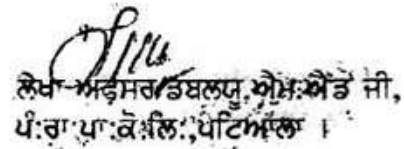 ਲੇਖਾ ਅਫਸਰ/ਡਬਲਯੂ.ਐਮ.ਐਂਡ ਜੀ,
ਪੰ:ਰਾ:ਪਾ:ਕੋ:ਲਿ:,ਪਟਿਆਲਾ ।